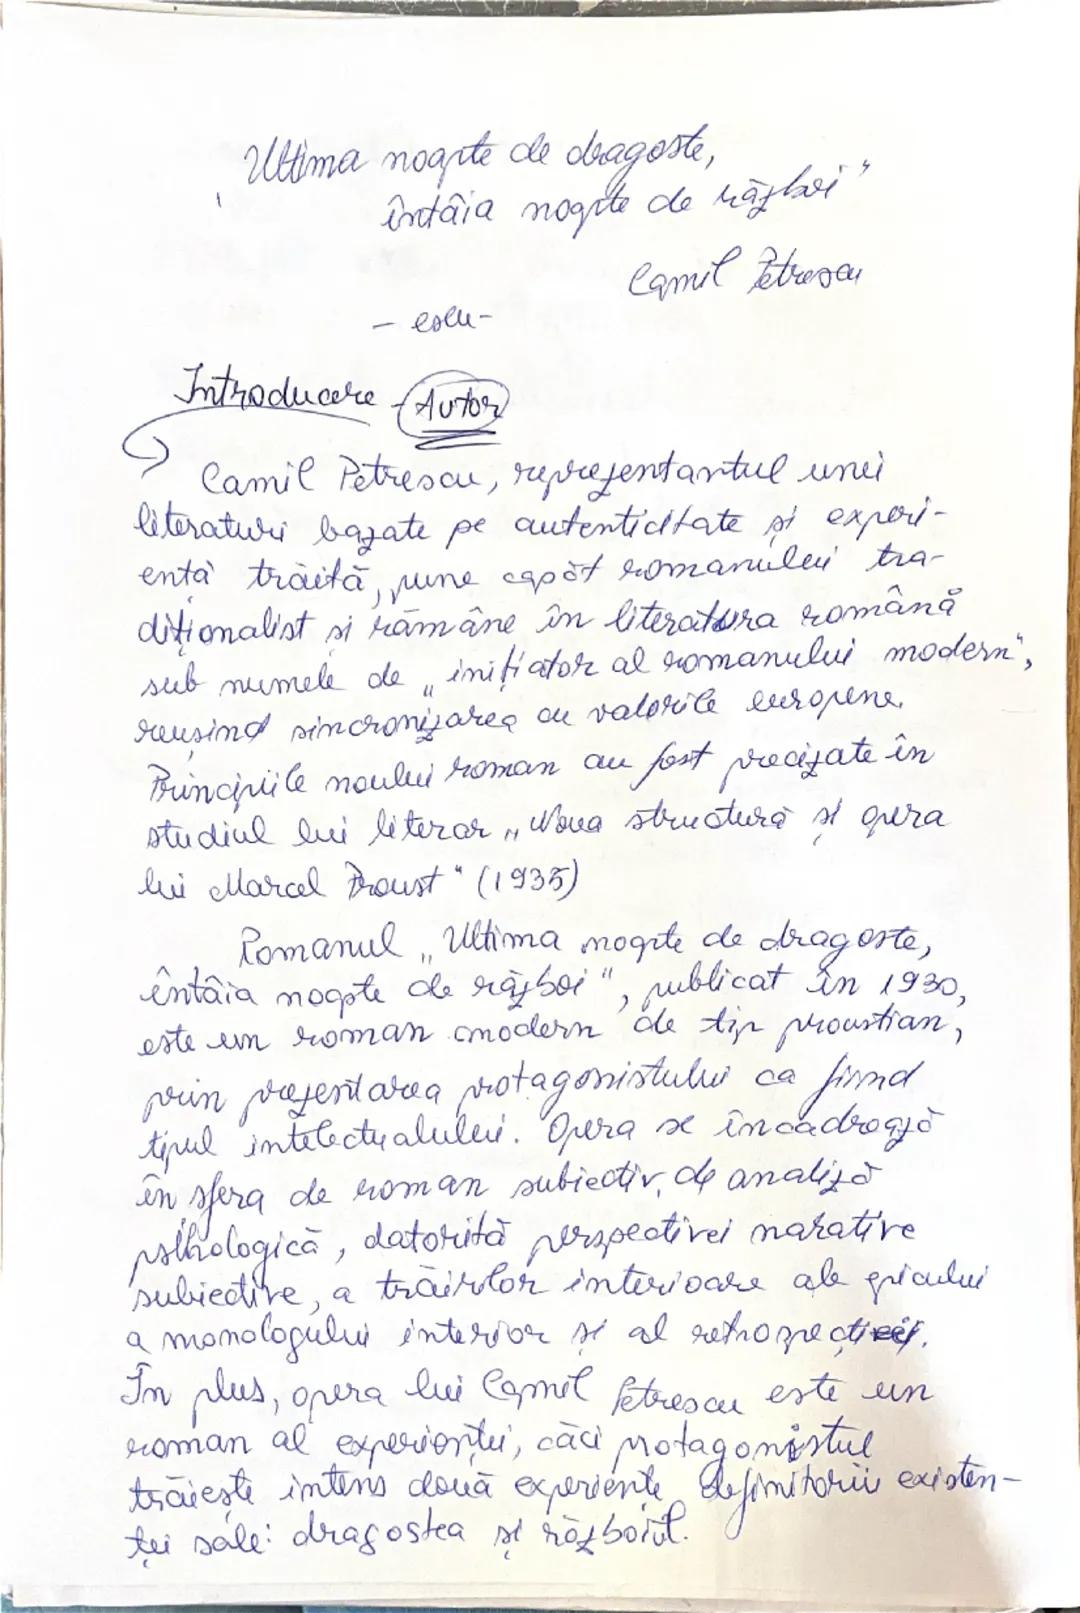 „Ultima noapte de dragoste,
întâia noapte de război"
Camil Petrescu
- eseu -
Introducere - Autor
Camil Petrescu, reprezentantul unei
literaturi bazate pe autenticitate și experi-
ență trăită, pune capăt romanului tra-
diționalist și rămâne în literatura română
sub numele de „inițiator al romanului modern",
reușind sincronizarea cu valorile europene.
Principiile noului roman au fost precizate în
studiul lui literar „Noua structură și opera
lui Marcel Proust" (1935)
Romanul „Ultima noapte de dragoste,
întâia noapte de război", publicat în 1930,
este un roman modern de tip proustian,
prin prezentarea protagonistului ca fiind
tipul intelectualului. Opera se încadrează
în sfera de roman subiectiv, de analiză
psihologică, datorită perspectivei narative
subiective, a trăirilor interioare ale
a monologului interior și al retrospecției.
În plus, opera lui Camil Petrescu este un
roman al experienței, căci protagonistul
trăiește intens două experiențe definitorii existen-
ței sale: dragostea și războiul.